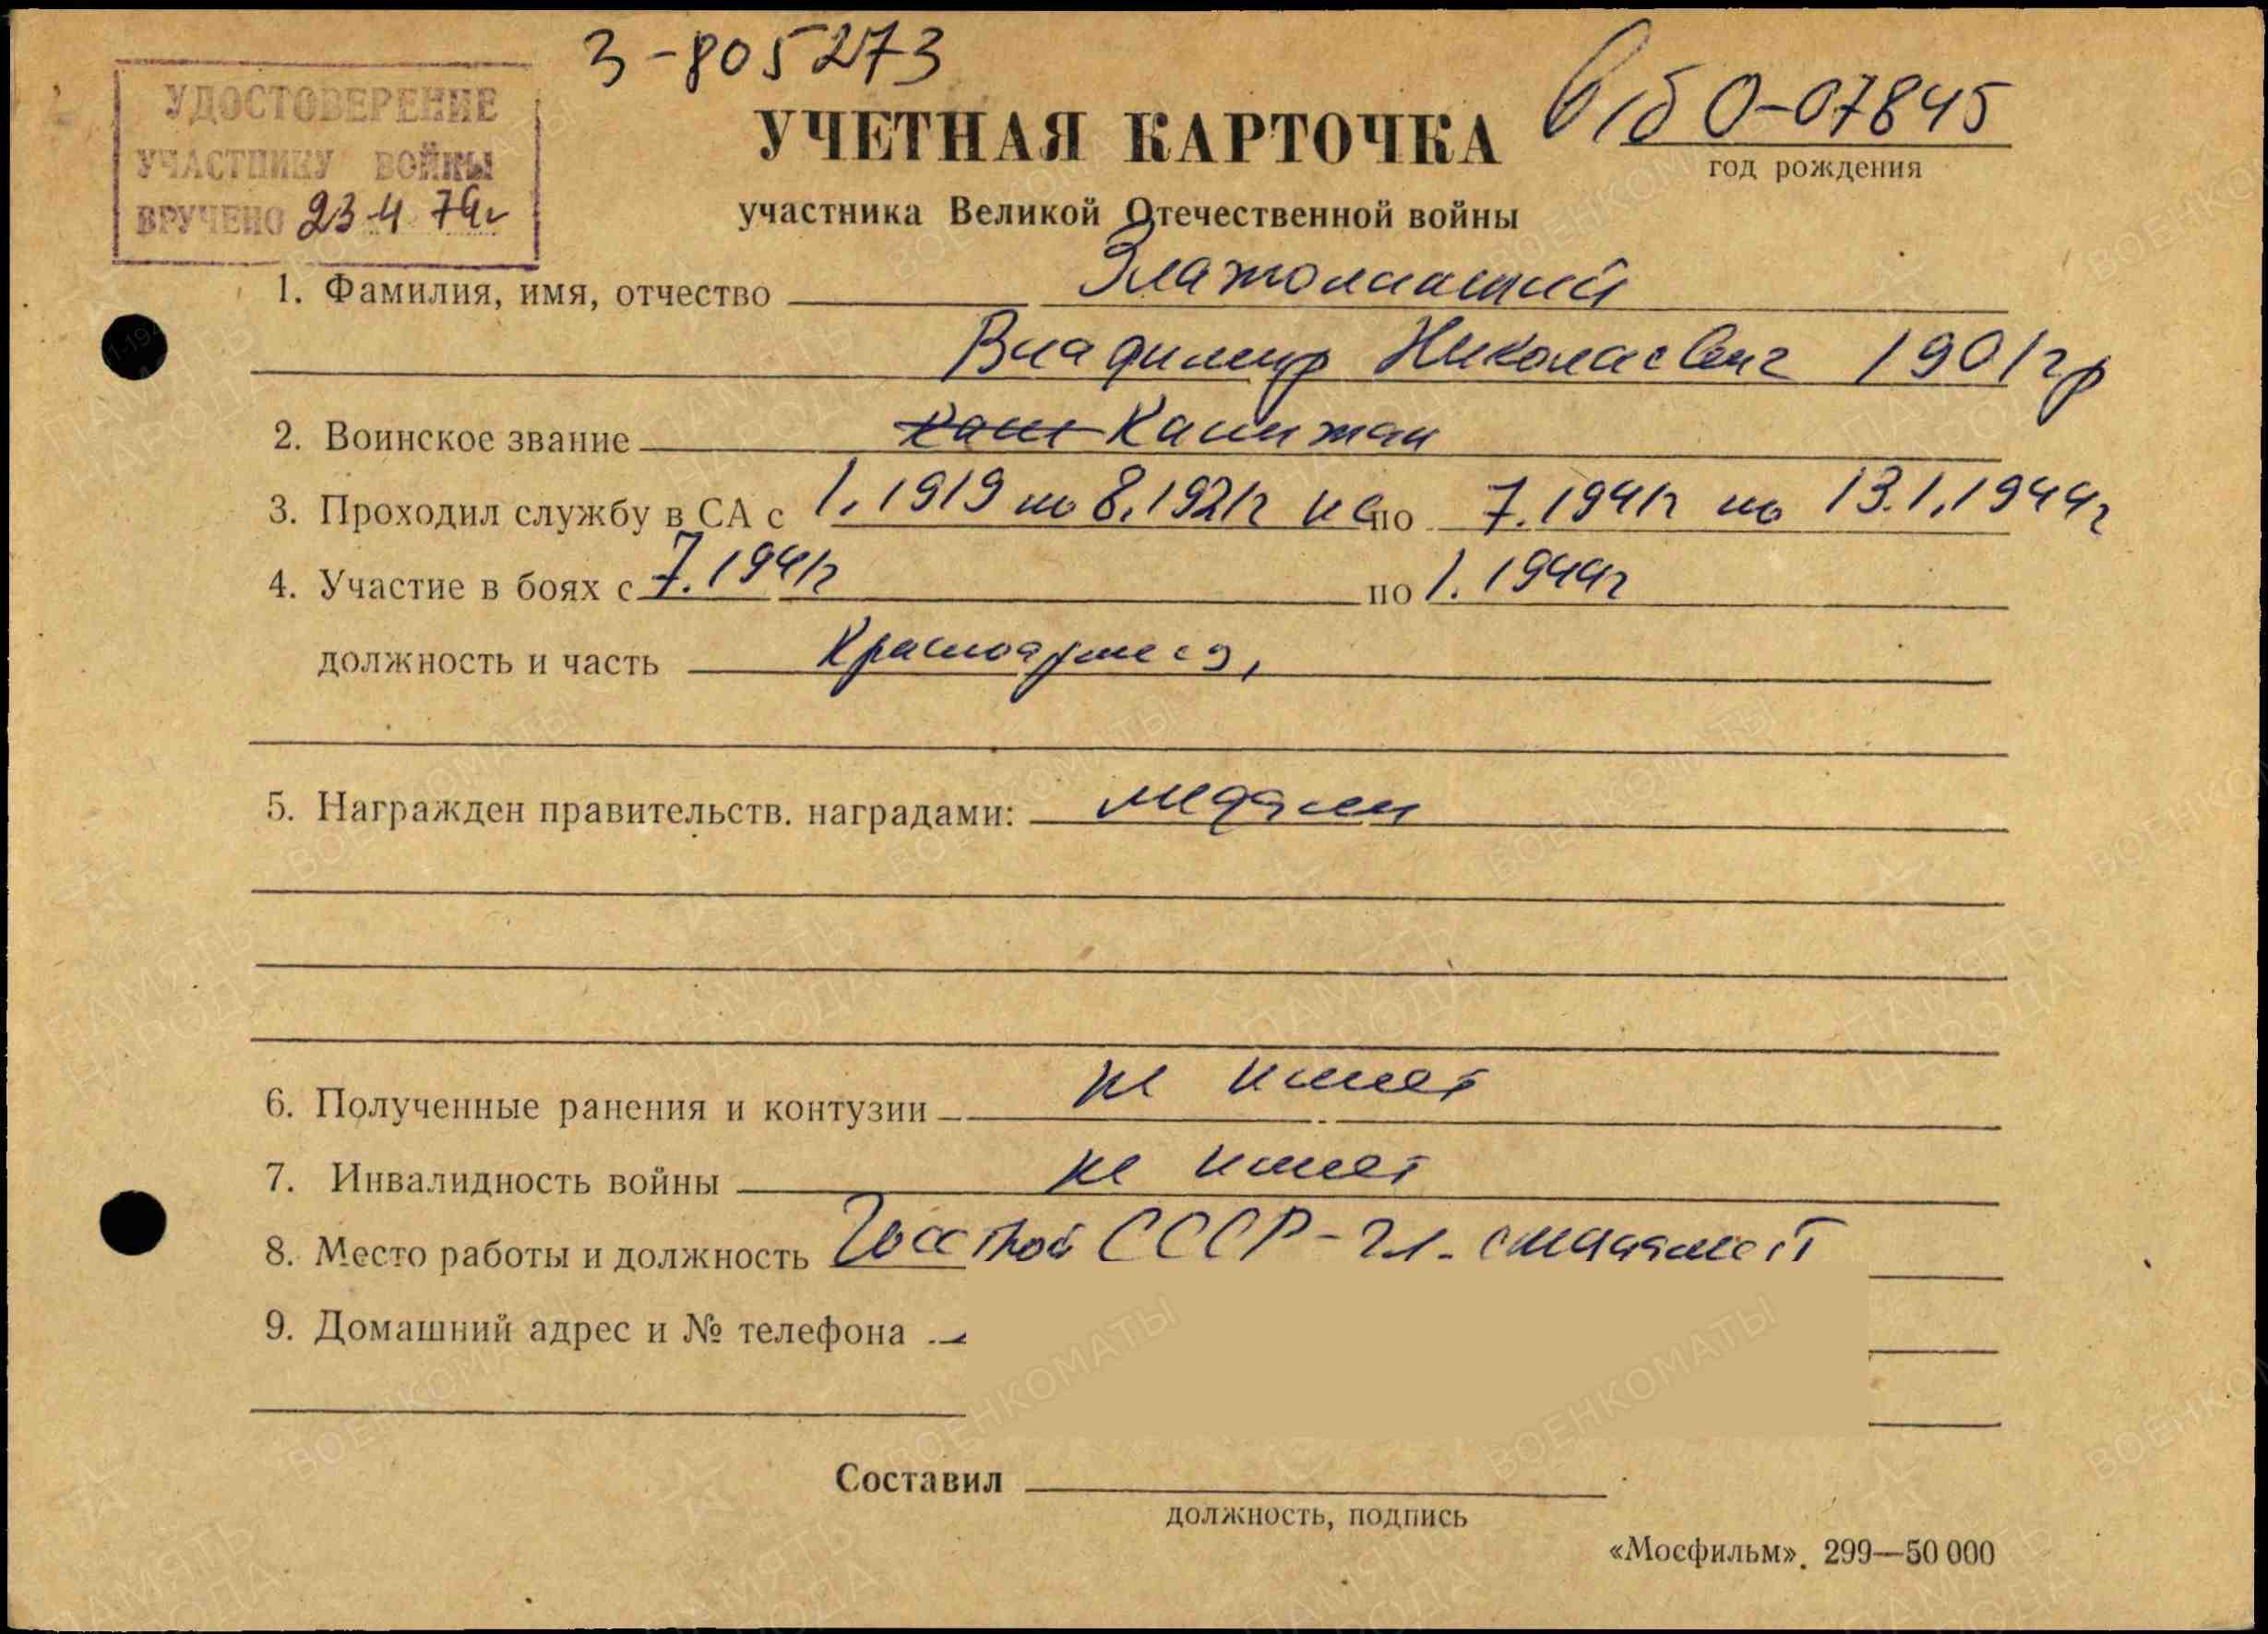 З-805273
УДОСТОВЕРЕНИЕ
УЧАСТНИКУ ВОЙНЫ
ВРУЧЕНО 23 4 79г
УЧЕТНАЯ КАРТОЧКА
0-07845
год рождения
участника Великой Отечественной войны
1. Фамилия, имя, отчество
Владимир Николаевич 1901гр
2. Воинское звание Капитан
3. Проходил службу в СА с 1.1919 по 8.1921г и с по 7.1941г по 13.1.1944г
4. Участие в боях с 7.1941г по 1.1944г
должность и часть
5. Награжден правительств. наградами:
6. Полученные ранения и контузии не имеет
7. Инвалидность войны не имеет
8. Место работы и должность Госстрой СССР - гл. специалист
9. Домашний адрес и № телефона
Составил
должность, подпись
«Мосфильм». 299—50 000
ПАМЯТЬ НАРОДА
ВОЕНКОМАТЫ